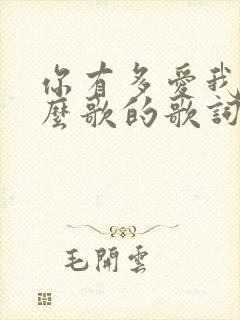 你有多爱我
麼歌的歌詞
毛開雲